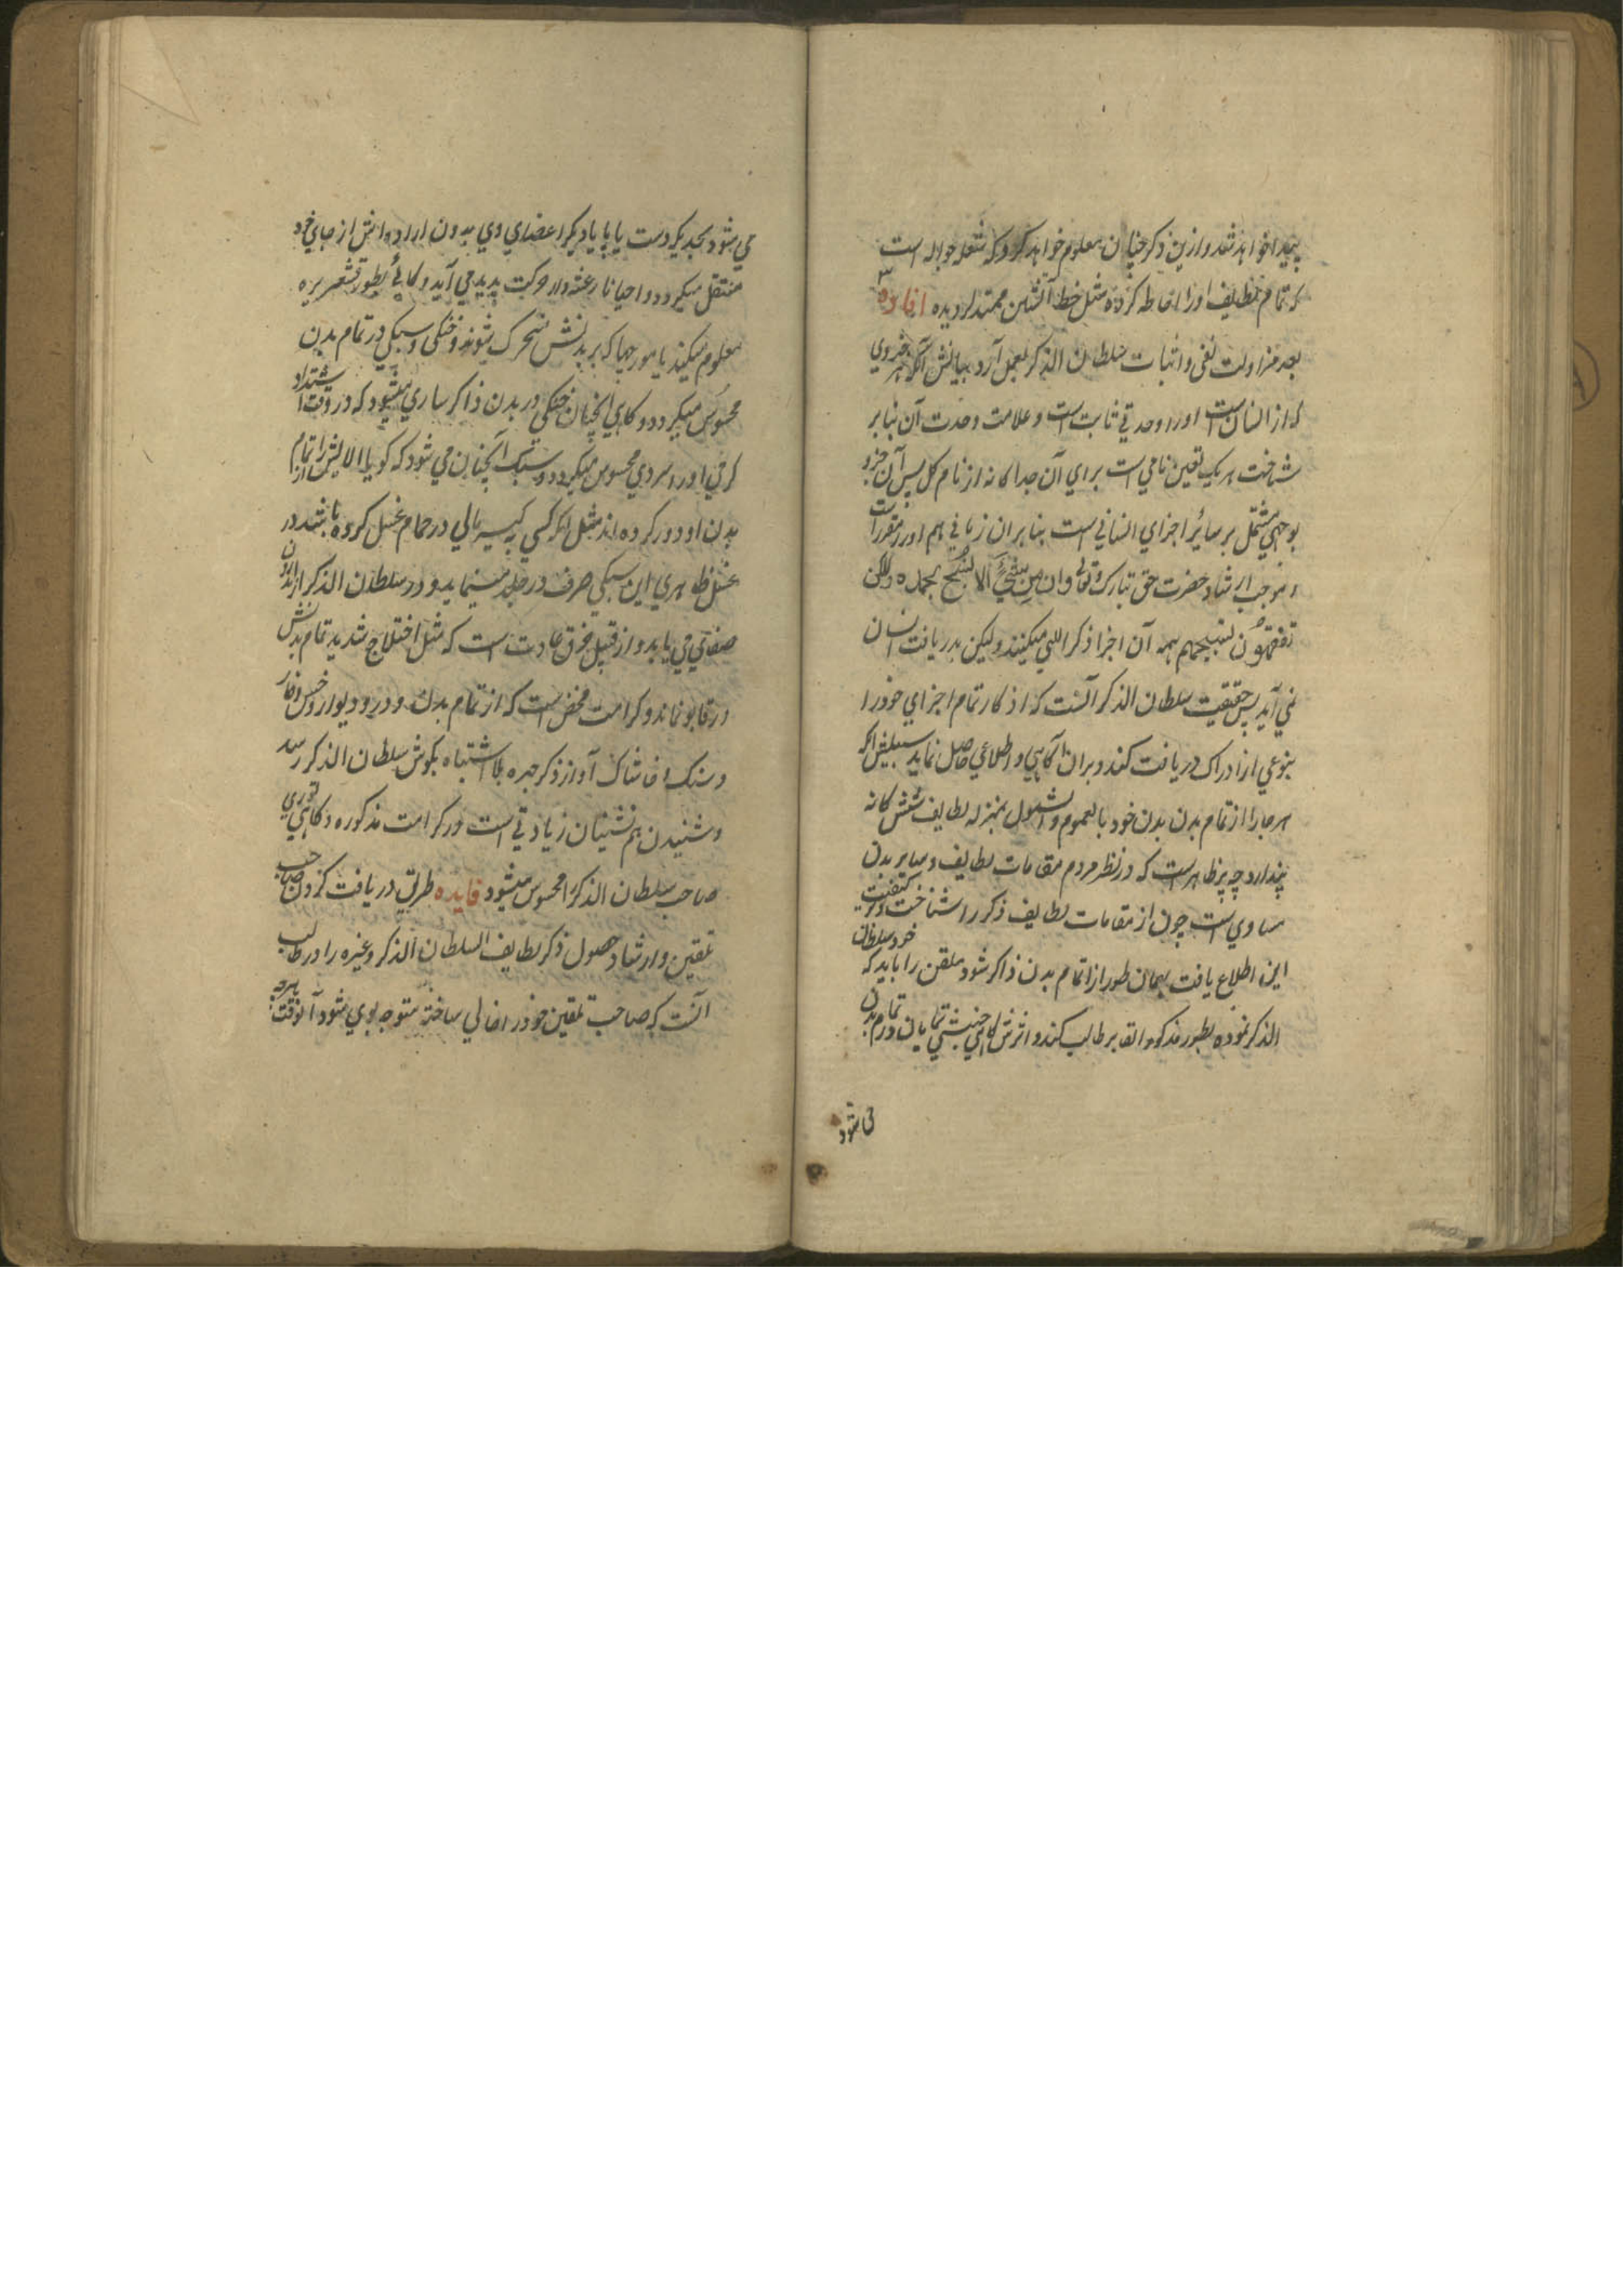 پیدا خواهد شد و ازین ذکر چنان معلوم خواهد کرد که شعله جواله است
که تمام لطایف او را احاطه کرده مثل خط آتشین ممتد گردیده افاده ۳
بعد مزاولت نفی و اثبات سلطان الذکر بعمل آرد بیانش آنکه هر جزوی
که از انسان است او را وحدتی ثابت است و علامت وحدت آن بنابر
شناخت هر یک تعین نامی است برای آن جداگانه از نام کل پس آن جزو
بوجهی مشتمل بر سائر اجزای انسانی است بنابران زبانی هم او را مقرر است
و بموجب ارشاد حضرت حق تبارک و تعالی وان من شیء الا یسبح بحمده ولکن
تفقهون تسبیحهم همه آن اجزا ذکر الهی میکنند ولیکن بدریافت انسان
نمی آید پس حقیقت سلطان الذکر آنست که اذکار تمام اجزای خود را
بنوعی از ادراک دریافت کند و بران آگاهی و اطلاعی حاصل نماید سبیلش آنکه
هر جا را از تمام بدن بدن خود بالعموم والشمول بمنزله لطایف ششگانه
پندارد چه پر ظاهر است که در نظر مردم مقامات لطایف و سایر بدن
مساوی است چون از مقامات لطایف ذکر را شناخت و بر کیفیت
این اطلاع یافت بهمان طور از تمام بدن ذاکر شود ملقن را باید که خود سلطان
الذکر نموده بطور مذکور القا بر طالب کند و اثرش گاهی جنبشی نمایان در تمام بدن
می شود
می شود بحدیکه دست یا پا یا دیگر اعضای وی بدون اراده اش از جای خود
منتقل میگردد و احیانا رعشه وار حرکت پدید می آید و گاهی بطور قشعریره
معلوم میکند یا مورچها که بر بدنش متحرک شوند و خنکی و سبکی در تمام بدن
محسوس میگردد و گاهی آنچنان خنکی در بدن ذاکر ساری میشود که در وقت اشتداد
گرمی او را سردی محسوس میگردد و سبک آنچنان می شود که گویا آلایش را از تمام
بدن او دور کرده اند مثل آنکه کسی کیسه مالی در حمام غسل کرده باشد در
غسل ظاهری این سبکی صرف در جلد مینماید و در سلطان الذکر از اندرون
صفائی می یابد و از قبیل خرق عادت است که مثل اختلاج شدید تمام بدنش
در قابو نماند و کرامت محض است که از تمام بدن و در و دیوار و خس و خار
و سنگ و خاشاک آواز ذکر جهره بلا اشتباه بگوش سلطان الذکر رسد
و شنیدن هم نشینان زیادتی است در کرامت مذکوره و گاهی نوری
صاحب سلطان الذکر را محسوس میشود فایده طریق دریافت کردن صاحب
تلقین و ارشاد حصول ذکر لطایف السلطان الذکر وغیره را در طالب
آنست که صاحب تلقین خود را خالی ساخته متوجه بوی شود آنوقت هرچه